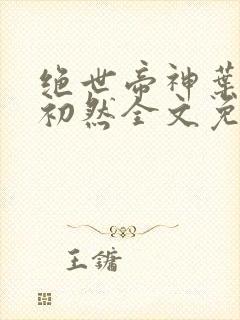 绝世帝神葉
初然全文免
王鏞